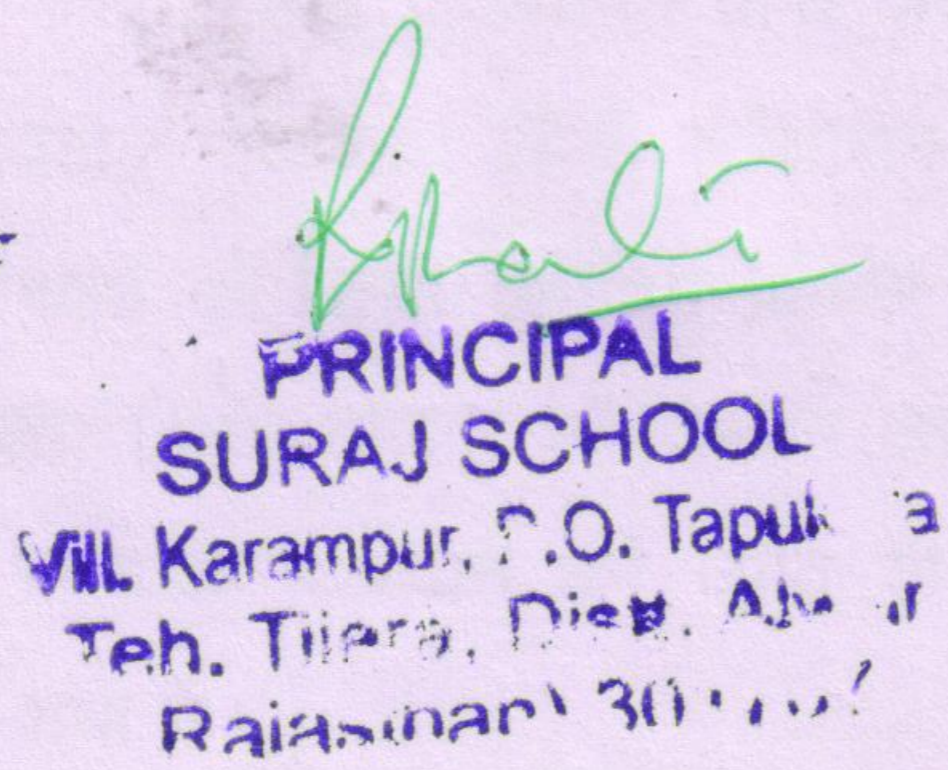 PRINCIPAL
SURAJ SCHOOL
Vill. Karampur, P.O.
Teh. Tijara, Distt.
Rajasthan